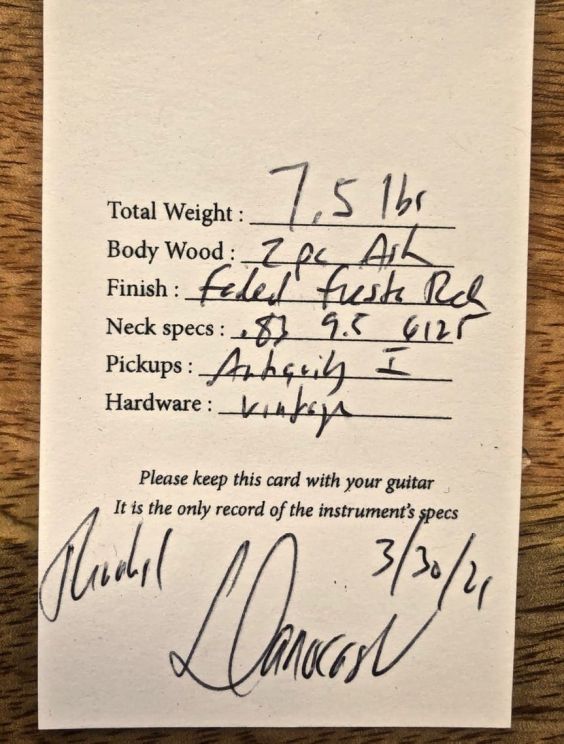 Total Weight : 7.5 lbs
Body Wood : 2 pc Ash
Finish : Faded Fiesta Red
Neck specs : .83 9.5 6125
Pickups : Antiquity I
Hardware : Vintage
Please keep this card with your guitar
It is the only record of the instrument's specs
3/30/21